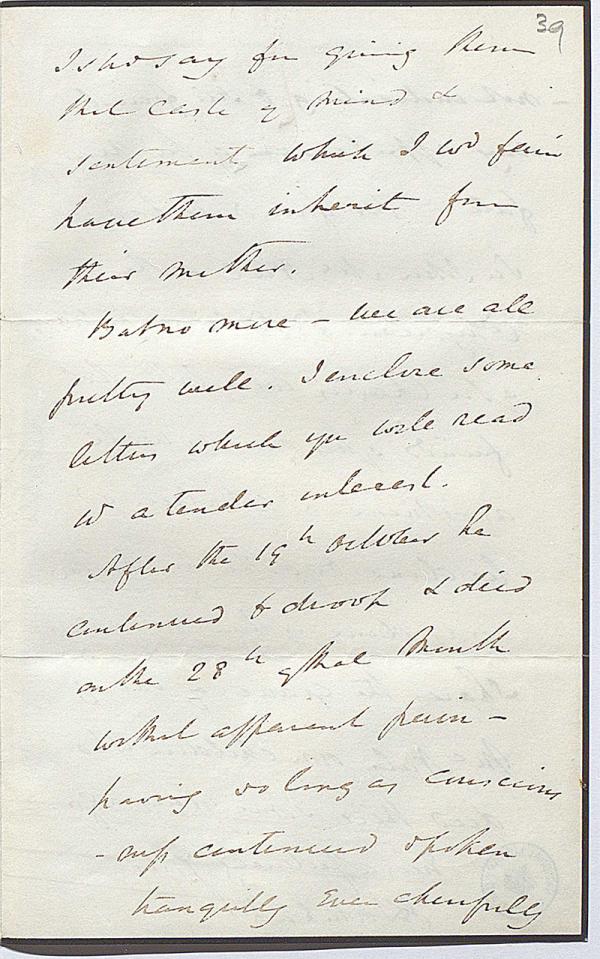 39
I shd say for giving them
that caste of mind &
sentiment, which I wd fain
have them inherit from
their mother.
But no more – we are all
pretty well. I enclose some
letters which you will read
w a tender interest.
After the 19th October he
continued to droop & died
on the 28th of that Month
without apparent pain –
having so long as conscious
-ness continued spoken
tranquilly even cheerfully